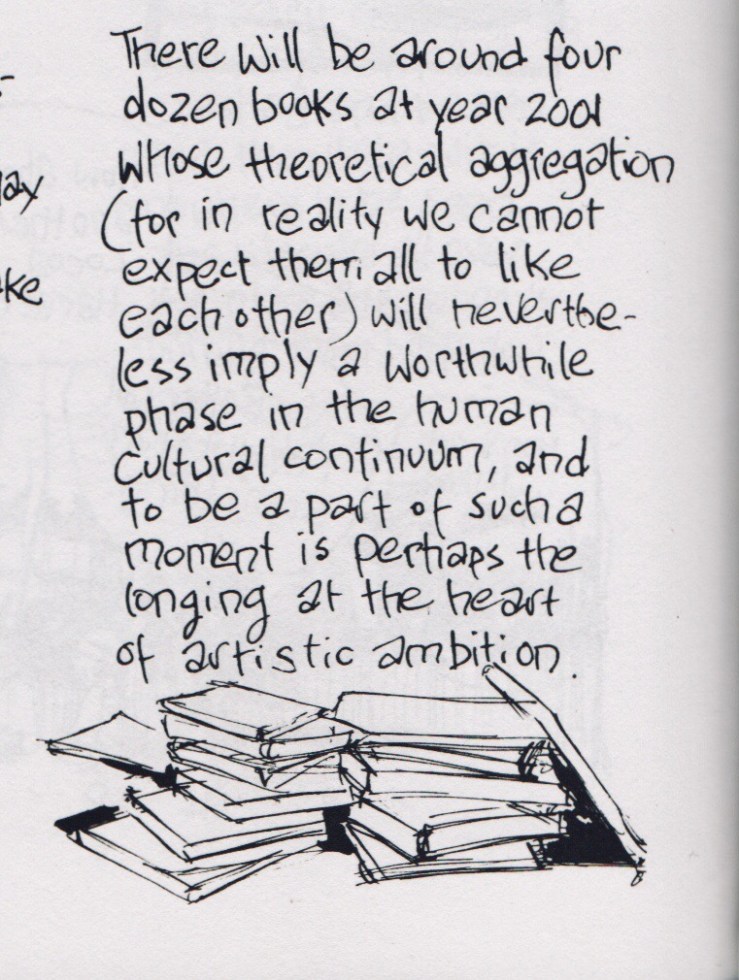 There will be around four
dozen books at year 2001
whose theoretical aggregation
lay
(for in reality we cannot
expect them all to like
ke
each other) will neverthe-
less imply a worthwhile
phase in the human
cultural continuum, and
to be a part of such a
moment is perhaps the
longing at the heart
of artistic ambition.